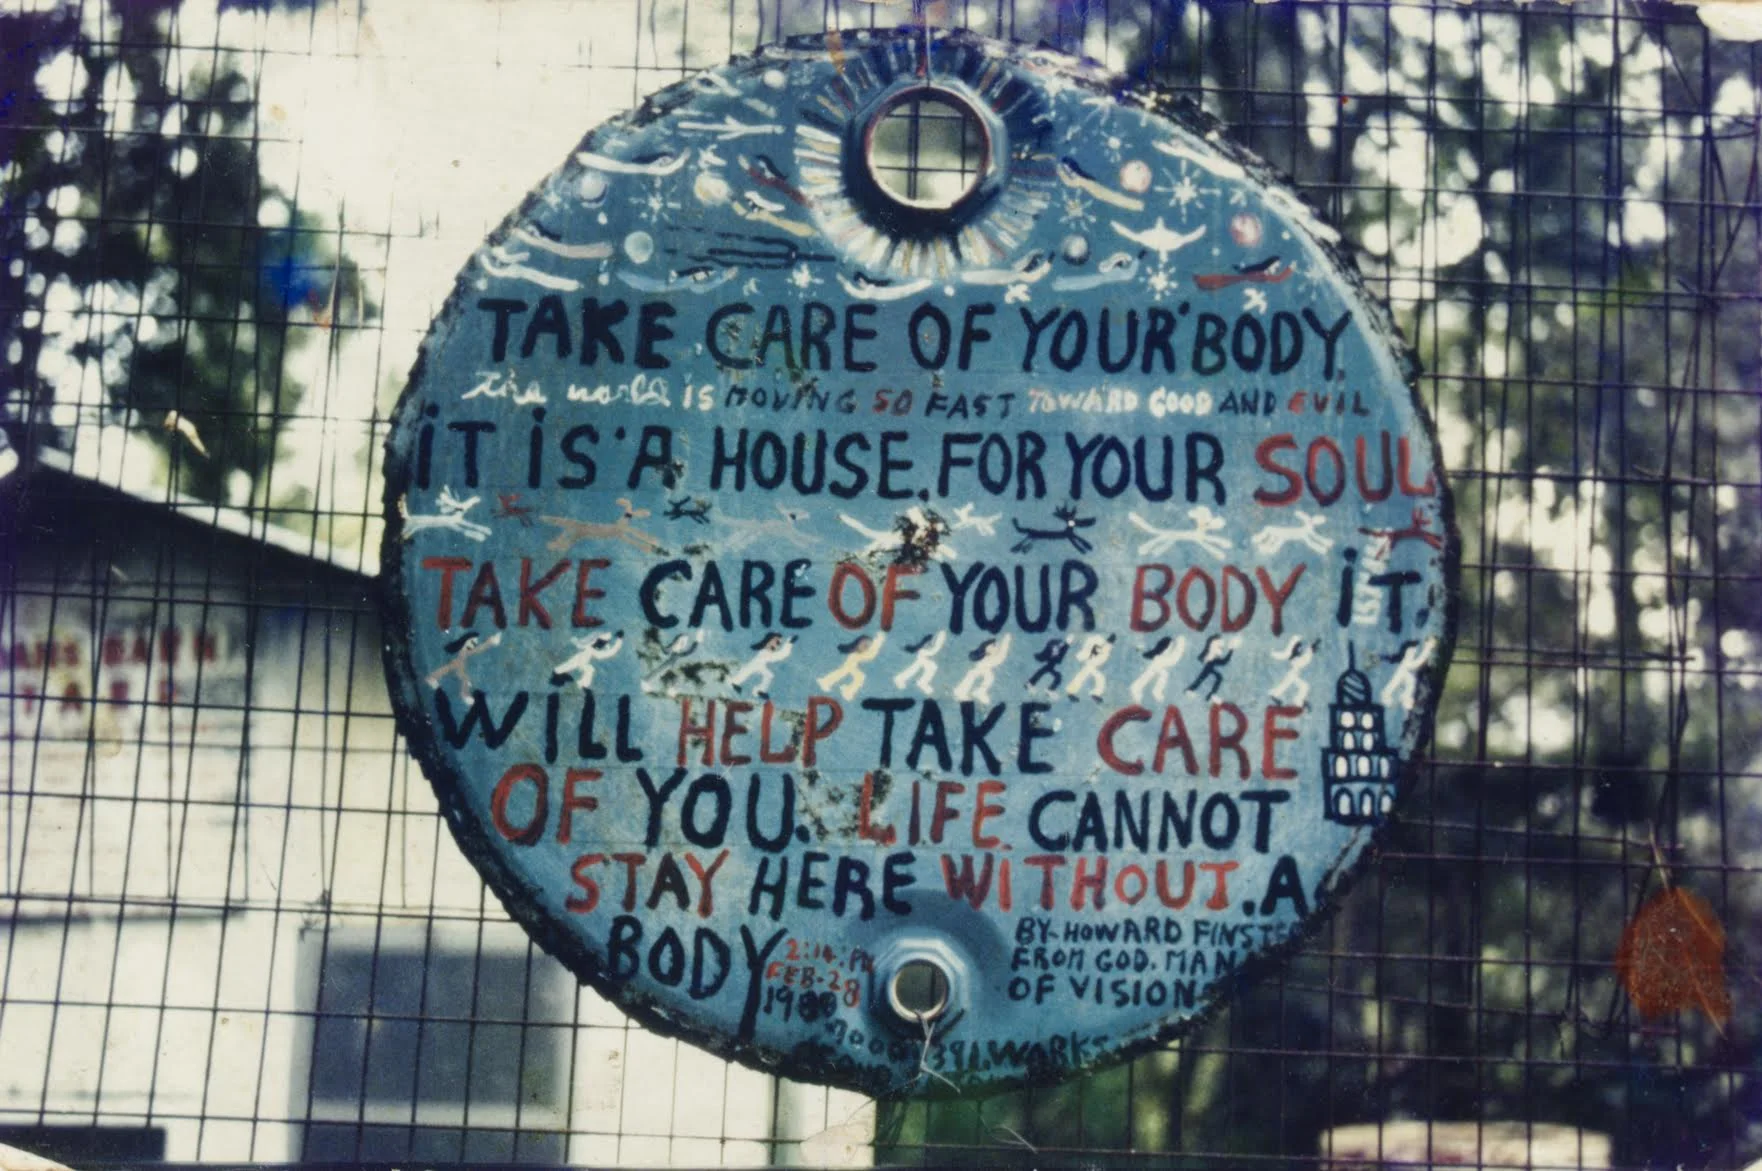 TAKE CARE OF YOUR BODY.
the world is MOVING SO FAST TOWARD GOOD AND EVIL
iT iS A HOUSE. FOR YOUR SOUL
TAKE CARE OF YOUR BODY iT.
WiLL HELP TAKE CARE
OF YOU. LIFE CANNOT
STAY HERE WiTHOUT. A.
BODY
2:14:PM
FEB-28
BY-HOWARD FINSTE
FROM GOD. MAN
OF VISION
391. WORKS